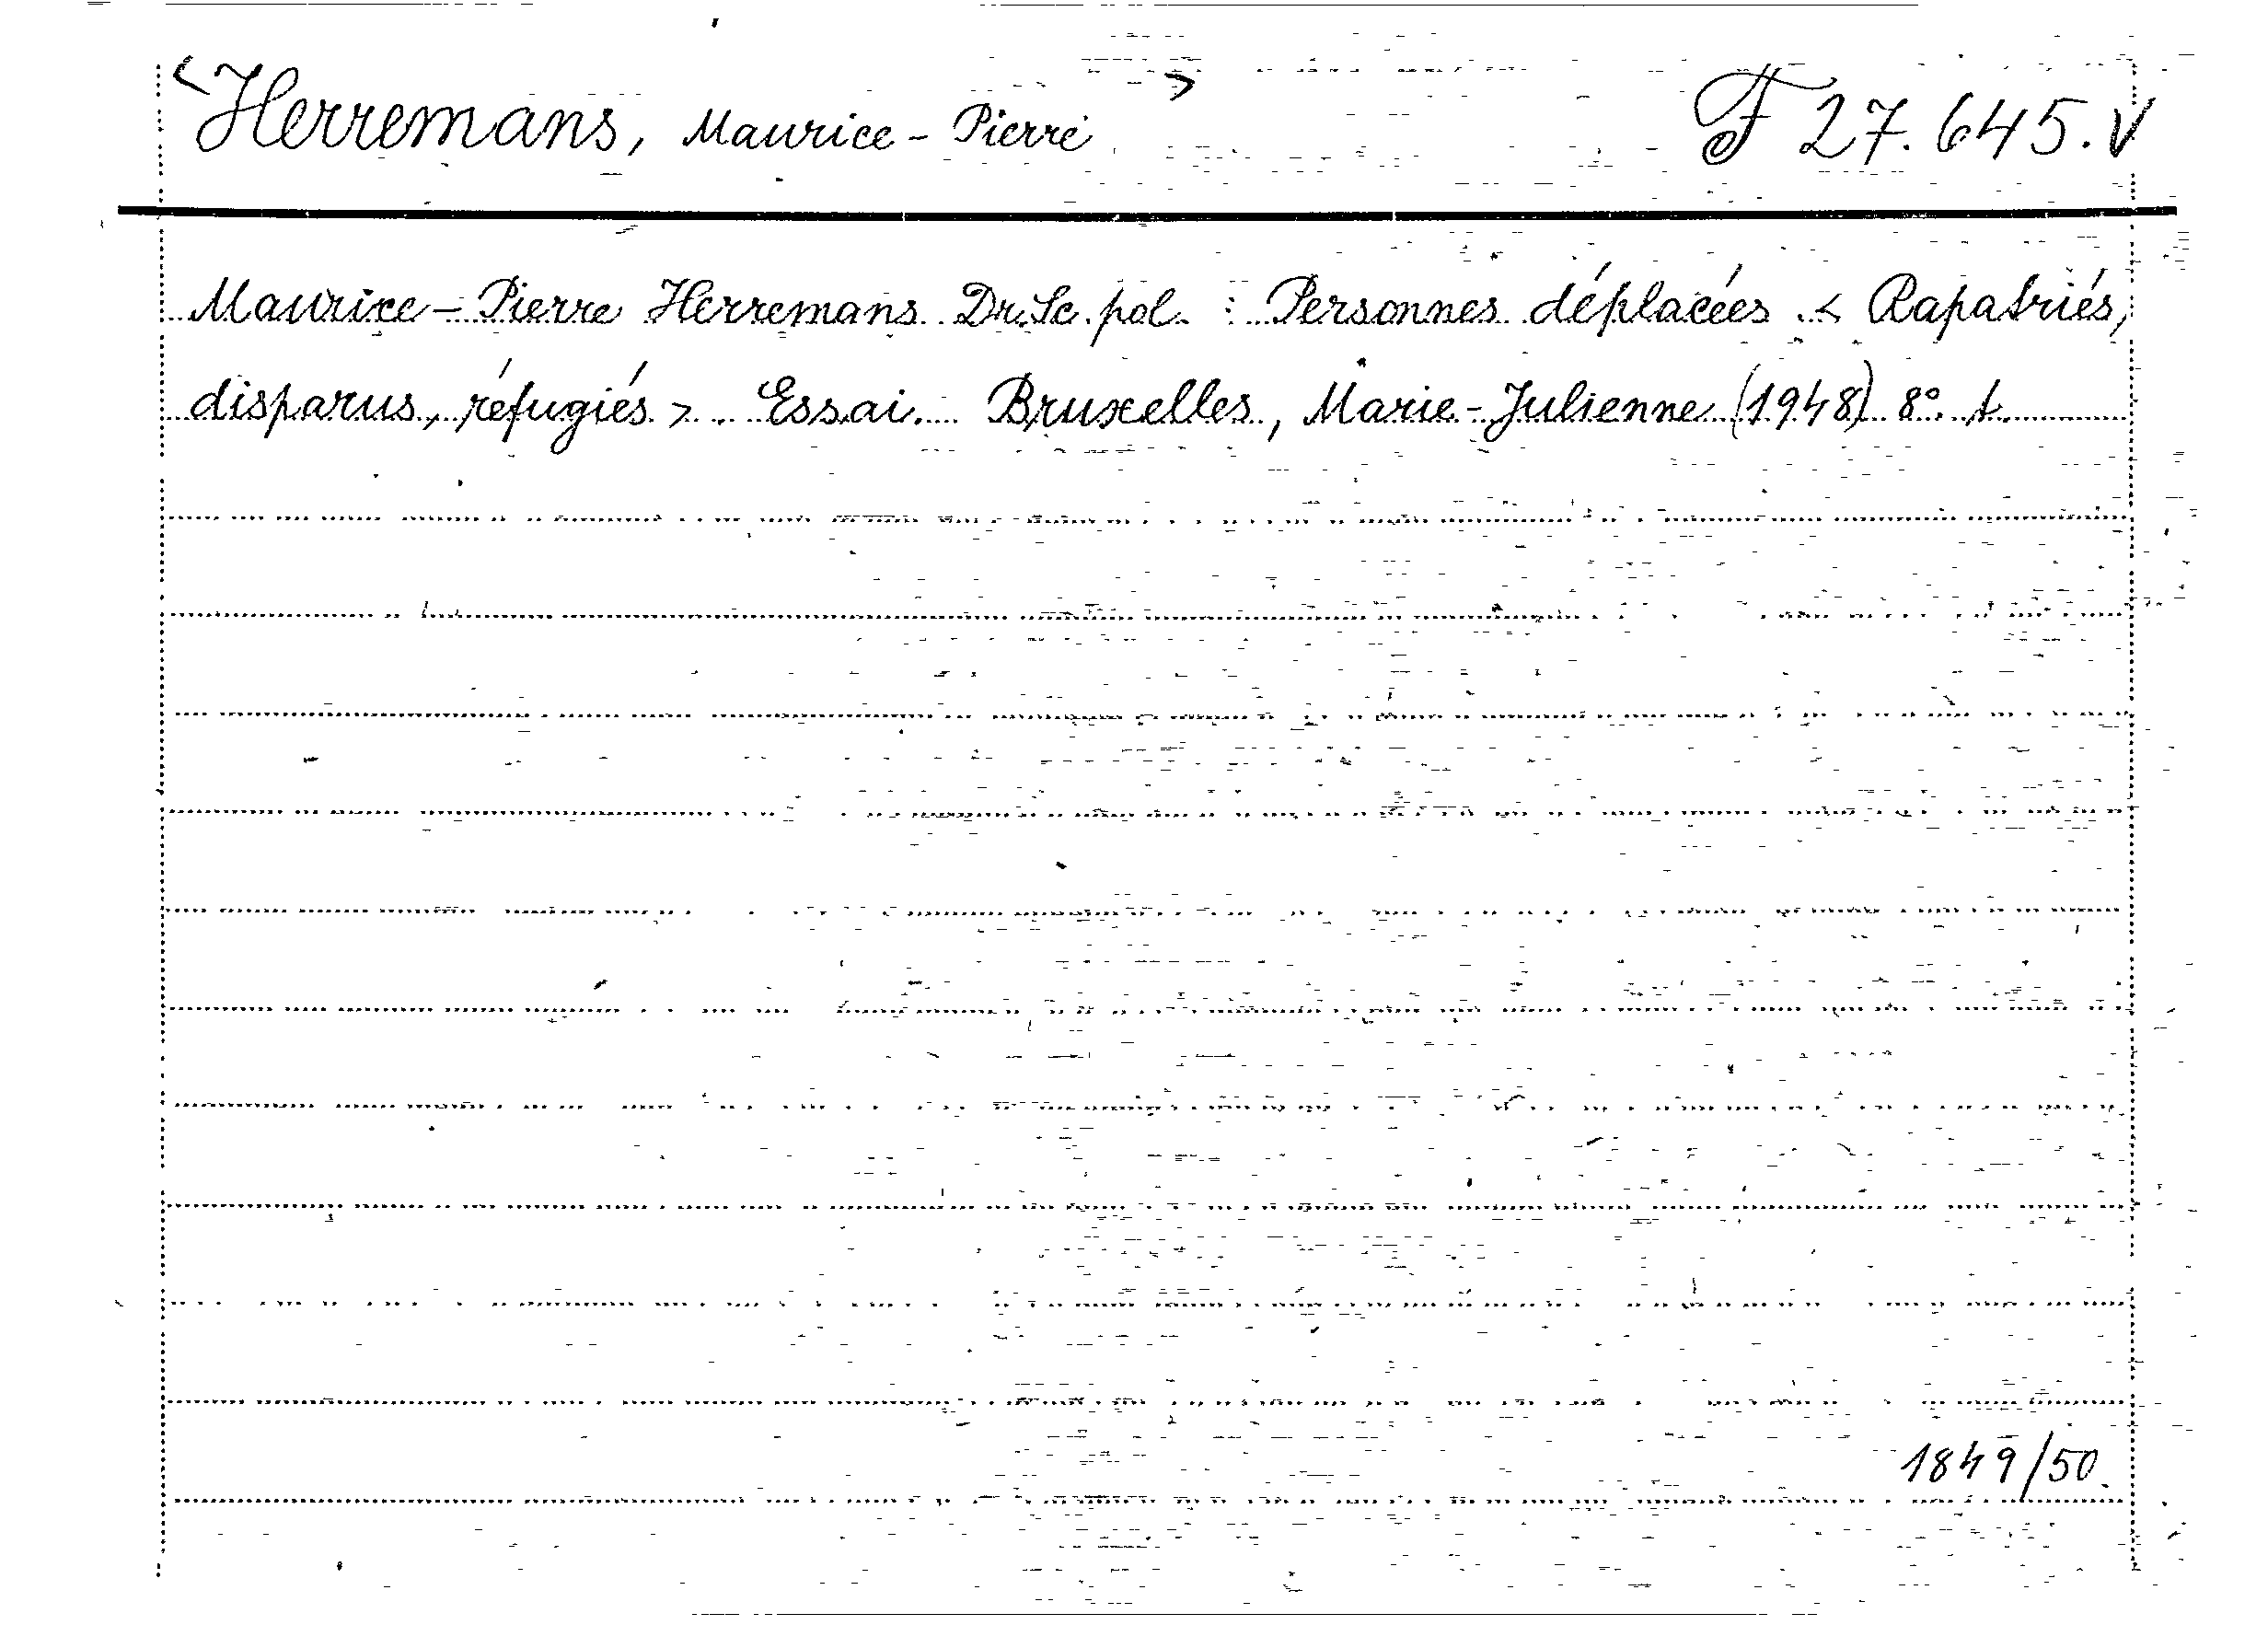 <Herremans, Maurice-Pierre> F 27.645.V
Maurice-Pierre Herremans Dr. Sc. pol. : Personnes déplacées < Rapatriés,
disparus, réfugiés >. Essai. Bruxelles, Marie-Julienne (1948) 8°. t.
1849/50.